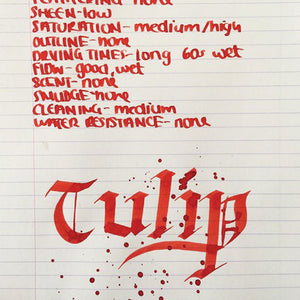 FEATHERING- none
SHEEN-low
SATURATION-medium/high
OUTLINE-none
DRYING TIMES-long 60s wet
FLOW-good, wet
SCENT-none
SMUDGE-none
CLEANING-medium
WATER RESISTANCE-none
Tulip